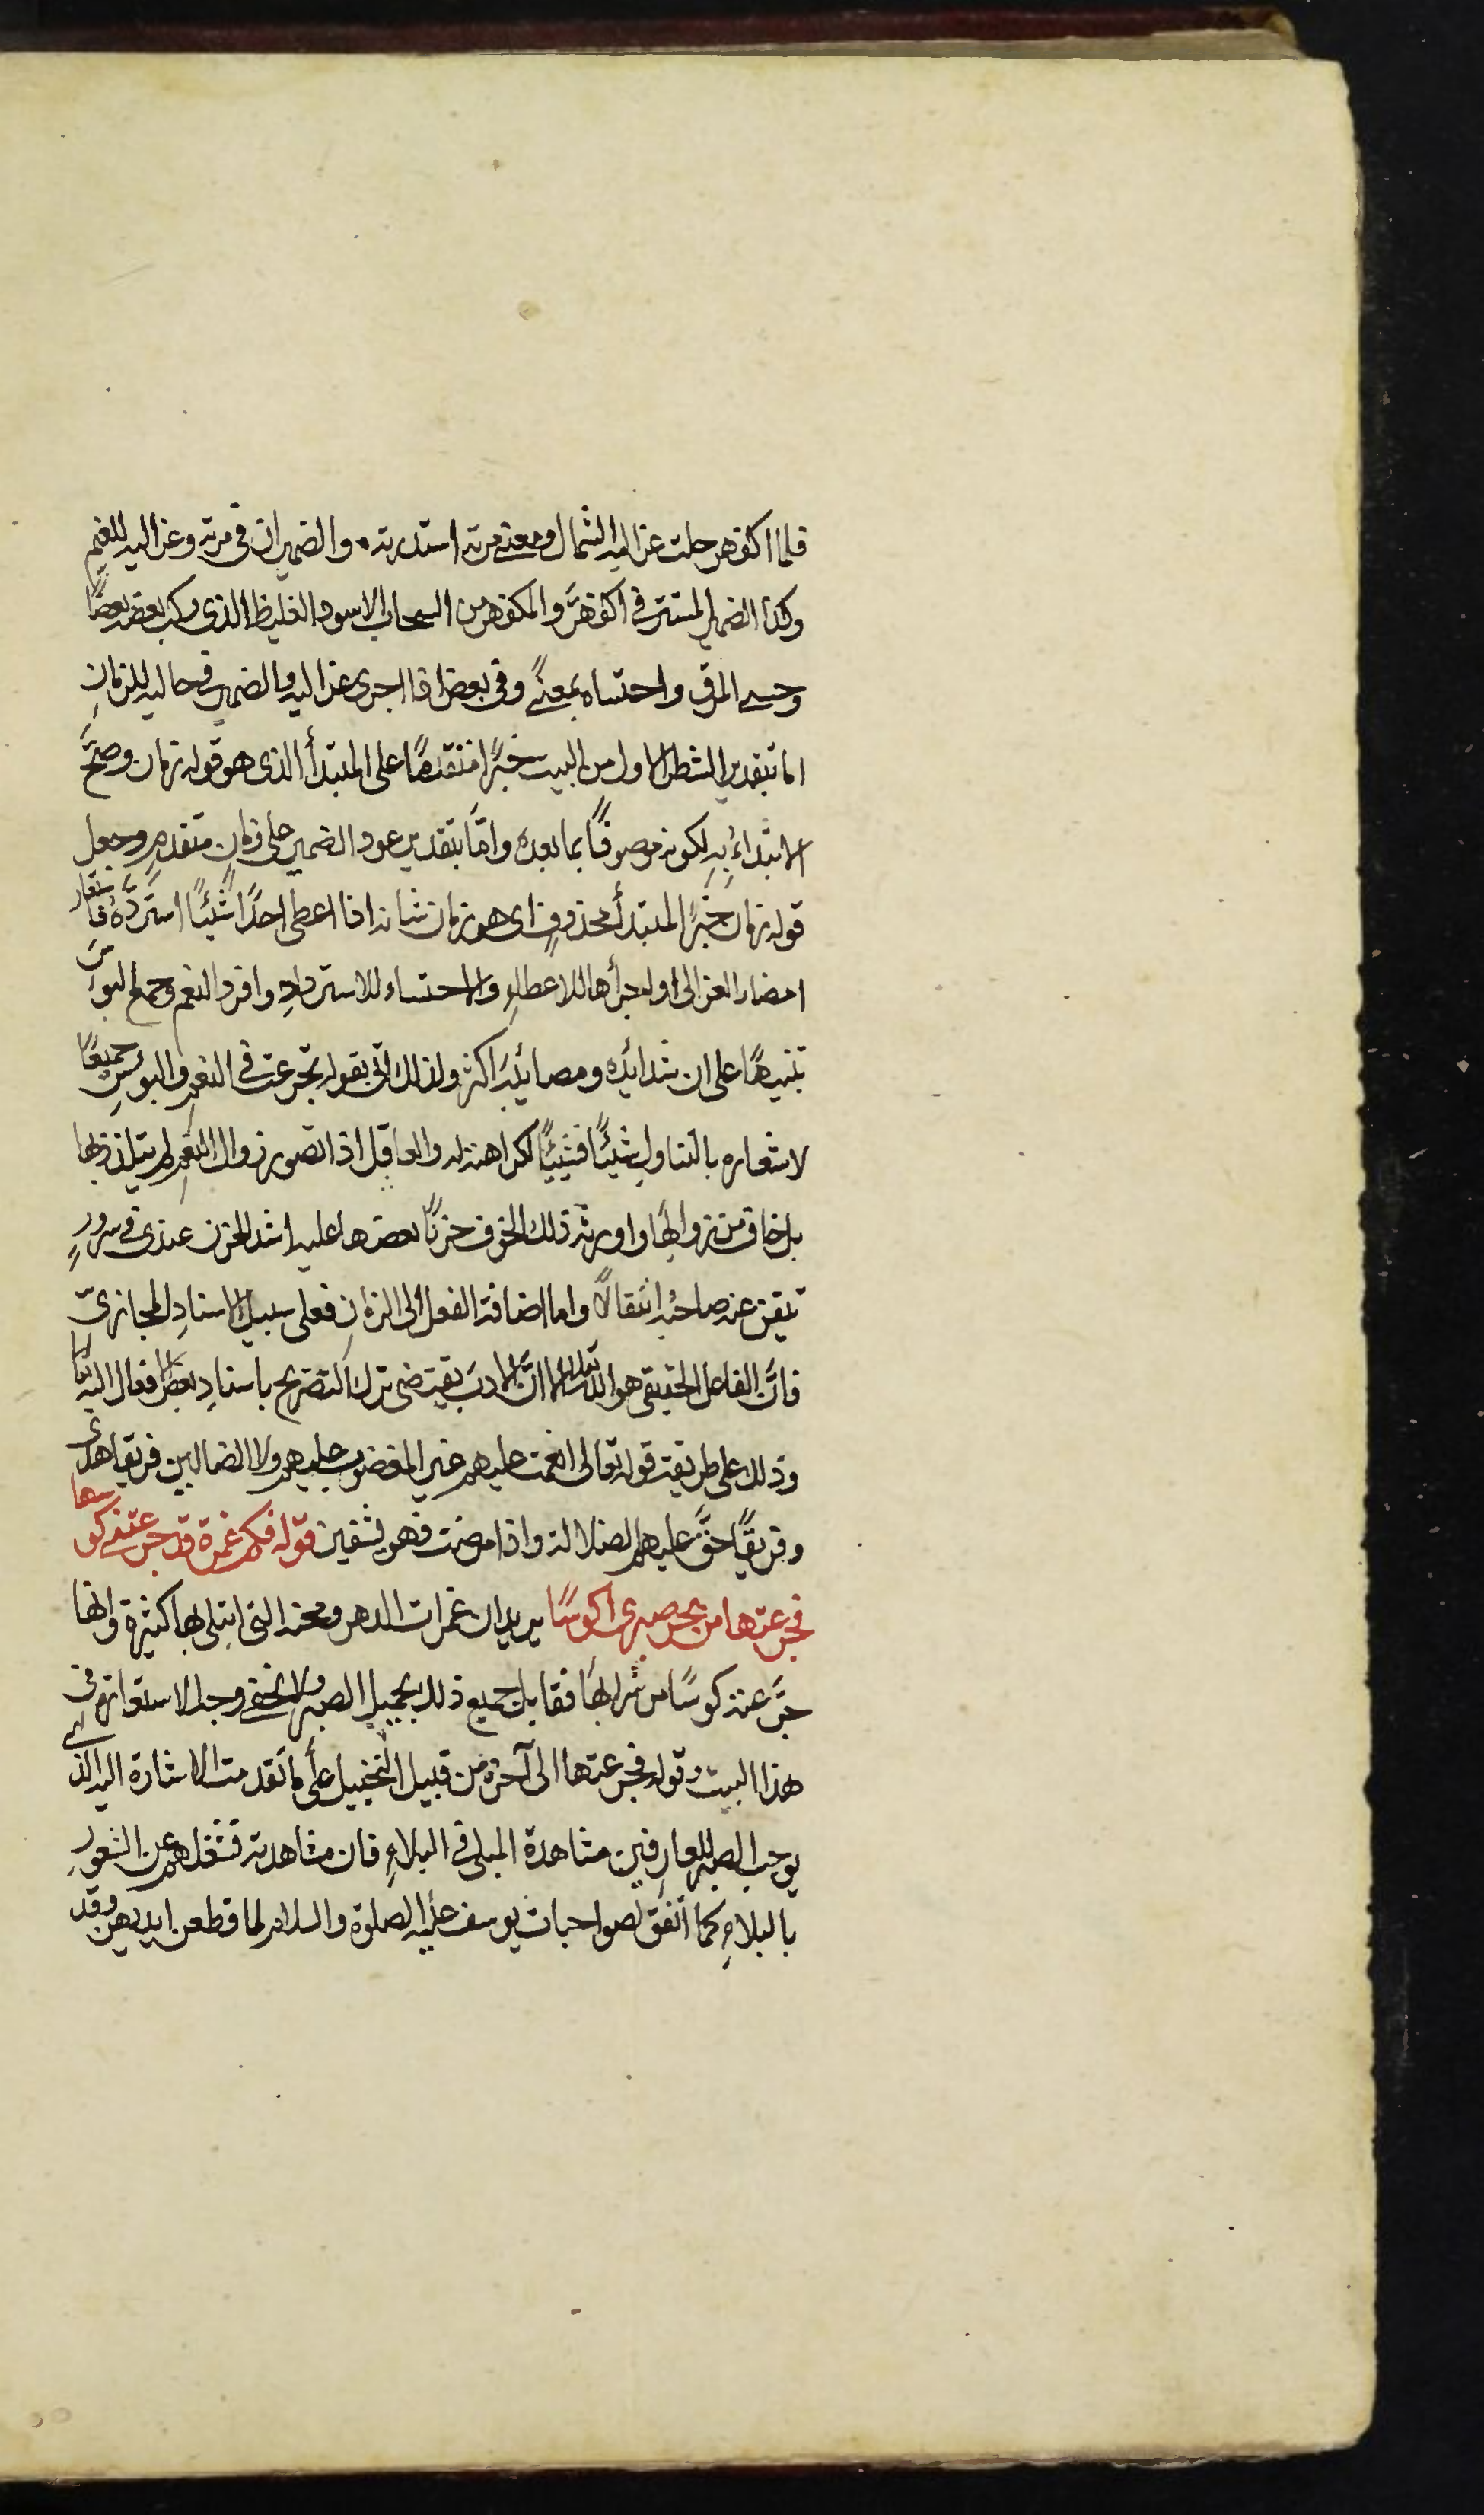 فلما اكفهر حلت عزاليه الشمال ومعنى مرته استدرته والضميران في مرته وعزاليه للغيم
وكذا الضمير المستتر في اكفهرّ والمكفهر من السحاب الاسود الغليظ الذى ركب بعضه بعضًا
وحسى المرق واحتساه بمعنًى وفى بعض اذا اجرى عزاليه والضمير في حاليه للزمانِ
اما بتقدير الشطر الاول من البيت خبرًا متقدمًا على المبتدأ الذى هو قوله زمان وصحَّ
الابتداءُ بِهِ لكونه موصوفًا بما بعده وامّا بتقدير عود الضمير على زمانٍ متقدمٍ وجعل
قوله زمان خبرًا لمبتدأ محذوفٍ اى هو زمان شانه اذا اعطى احدًا شيئًا استردّهُ فاستعار
امضار العزالى اولجرأها للاعطاءِ والاحتساء للاستردادِ وافرد النعم وجمع البوس
تنبيهًا على ان شدائده ومصائبه اكثر ولذلك اتى بقوله تجرعت فى النعمِ والبوسِ جميعًا
لاشعاره بالتناولِ شيئًا فشيئًا لكراهته له والعاقل اذا تصور زوال النعمِ لم يتلذذ بها
بل خاف من زوالها واورثه ذلك الخوف حزنًا بعضها عليه اشد الحزن عندى فى سرورٍ
تيقن عنه صاحبُه انتقالًا واما اضافة الفعل الى الزمانِ فعلى سبيل الاسنادِ المجازىّ
فانَّ الفاعل الحقيقى هو الله تعالى الا انّ الادبَ يقتضى ترك التصريح باسنادِ بعض الافعال اليه تعالى
وذلك على طريقة قوله تعالى انعمت عليهم غير المغضوب عليهم ولا الضالين فريقا هدى
وفريقًا حقَّ عليهم الضلالة واذا مرضت فهو يشفين قوله فكم غمرة قد جرعتنى كوسها
فجرعتها من بحر صبرى اكوسًا يريد ان غمرات الدهر ومحنه التى ابتلى بها كثيرة وانها
جرَّعته كوسًا من شرابها فقابل جميع ذلك بجميل الصبر ولا يخفى وجه الاستعارة فى
هذا البيت وقوله فجرعتها الى آخره من قبيل التخييل على ما تقدمت الاشارة اليه الذى
يوجب الصبر للعارفين مشاهدة المبلى فى البلاءِ فان مشاهدته تشغلهم عن الشعورِ
بالبلاءِ كما اتفق لصواحبات يوسف عليه الصلوة والسلام لما قطعن ايديهن وقد